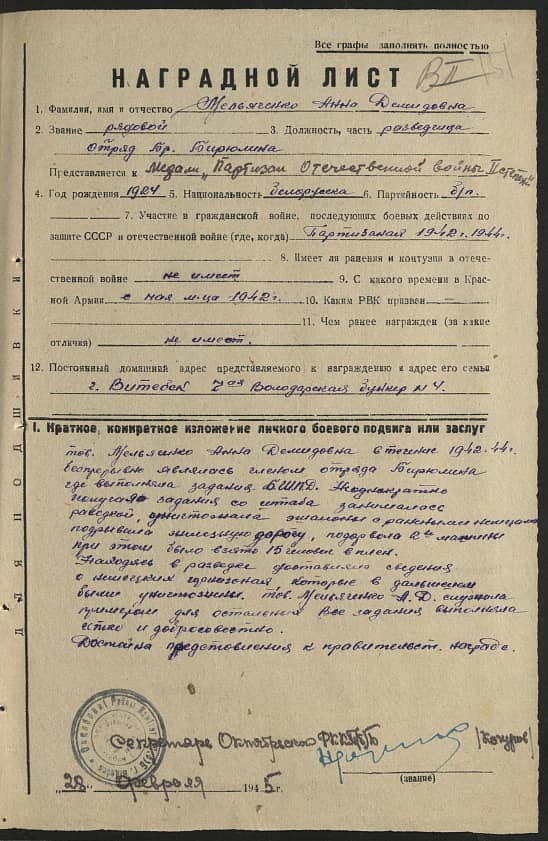 Все графы заполнять полностью
НАГРАДНОЙ ЛИСТ
1. Фамилия, имя и отчество Мельяченко Анна Демидовна
2. Звание рядовой 3. Должность, часть разведчица
Отряд Бр. Бирюлина
Представляется к Медали „Партизан Отечественной войны II степени"
4. Год рождения 1924 5. Национальность белорусска 6. Партийность б/п.
7. Участие в гражданской войне, последующих боевых действиях по
защите СССР и отечественной войне (где, когда) Партизаная 1942г. 1944г.
8. Имеет ли ранения и контузия в отече-
ственной войне не имеет 9. С какого времени в Крас-
ной Армии с мая м-ца 1942г. 10. Каким РВК призван —
11. Чем ранее награжден (за какие
отличия) не имеет.
12. Постоянный домашний адрес представляемого к награждению и адрес его семьи
г. Витебск 2ая Володарская бункер № 4.
I. Краткое, конкретное изложение личного боевого подвига или заслуг
тов. Мельяченко Анна Демидовна в течение 1942-44г.
беспрерывно являлась членом отряда Бирюлина
где выполняла задания БШПД. Неоднократно
задания со штаба занималась
разведкой, эшалоны с ранеными немцами
подрывила железную дорогу, подорвала 2ве машины
при этом было взято 15 человек в плен.
Находясь в разведке доставляла сведения
о немецких гарнизонах, которые в дальнейшем
были уничтожины. тов. Мельяченко А.Д. служила
примером для остальных все задания выполняла
четко и добросовестно.
Достойна представления к правительст. награде.
Секретарь Октябрьского РККПБ /Кочуров/
(звание)
„28" февраля 1945г.
ДЛЯ ПОДШИВКИ